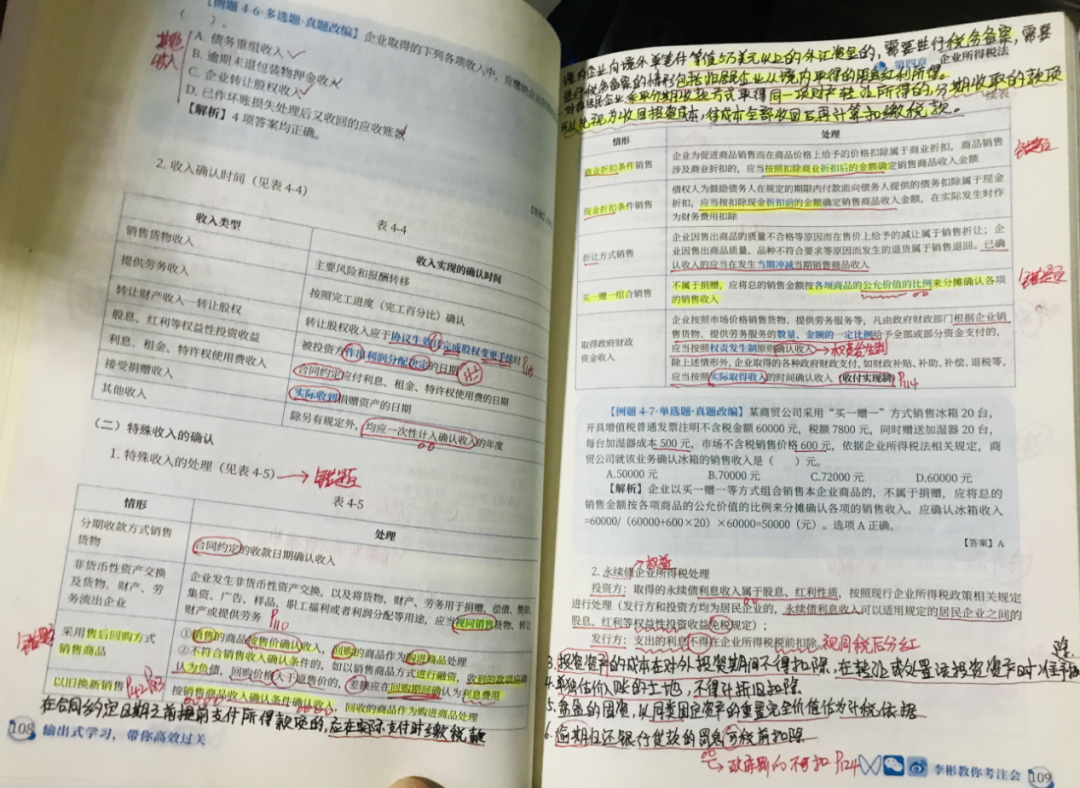 【例题 4-6·多选题·真题改编】企业取得的下列各项收入中，应缴纳企业所得税
（ ）。
其他
收入
A. 债务重组收入
B. 逾期未退包装物押金收入
C. 企业转让股权收入
D. 已作坏账损失处理后又收回的应收账款
【解析】4 项答案均正确。
2. 收入确认时间（见表 4-4）
表 4-4
收入类型 收入实现的确认时间
销售货物收入 主要风险和报酬转移
提供劳务收入 按照完工进度（完工百分比）确认
转让财产收入—转让股权 转让股权收入应于协议生效且完成股权变更手续时
股息、红利等权益性投资收益 被投资方作出利润分配决定的日期
利息、租金、特许权使用费收入 合同约定应付利息、租金、特许权使用费的日期
接受捐赠收入 实际收到捐赠资产的日期
其他收入 除另有规定外，均应一次性计入确认收入的年度
（二）特殊收入的确认
1. 特殊收入的处理（见表 4-5）
表 4-5
情形 处理
分期收款方式销售
货物
合同约定的收款日期确认收入
非货币性资产交换
及货物、财产、劳
务流出企业
企业发生非货币性资产交换，以及将货物、财产、劳务用于捐赠、偿债、赞助、
集资、广告、样品、职工福利或者利润分配等用途，应当视同销售货物、转让
财产或提供劳务 P110
采用售后回购方式
销售商品
①销售的商品按售价确认收入，回购的商品作为购进商品处理
②不符合销售收入确认条件的，如以销售商品方式进行融资，收到的款项应确
认为负债，回购价格大于原售价的，差额应在回购期间确认为利息费用
以旧换新销售
按销售商品收入确认条件确认收入，回收的商品作为购进商品处理
在合同约定日期之前提前支付所得款项的，应在实际支付时缴税款
108 输出式学习，带你高效过关
境内企业向境外单笔支付等值5万美元以上的外汇资金的，需要进行税务备案，需要
第四章 企业所得税法
进行税务备案的情形包括非居民企业从境内取得的股息红利所得。
对非居民企业采取分期收款方式取得同一项财产转让所得的，分期收取的款项
可以先视为收回投资成本，待成本全部收回后再计算扣缴税款。
续表
情形 处理
商业折扣条件销售
企业为促进商品销售而在商品价格上给予的价格扣除属于商业折扣，商品销售
涉及商业折扣的，应当按照扣除商业折扣后的金额确定销售商品收入金额
现金折扣条件销售
债权人为鼓励债务人在规定的期限内付款而向债务人提供的债务扣除属于现金
折扣，应当按扣除现金折扣前的金额确定销售商品收入金额，在实际发生时作
为财务费用扣除
折让方式销售
企业因售出商品的质量不合格等原因而在售价上给予的减让属于销售折让；企
业因售出商品质量、品种不符合要求等原因而发生的退货属于销售退回。已确
认收入的应当在发生当期冲减当期销售商品收入
买一赠一组合销售
不属于捐赠，应将总的销售金额按各项商品的公允价值的比例来分摊确认各项
的销售收入
取得政府财政
资金收入
企业按照市场价格销售货物、提供劳务服务等，凡由政府财政部门根据企业销
售货物、提供劳务服务的数量、金额的一定比例给予全部或部分资金支付的，
应当按照权责发生制原则确认收入 → 权责发生制
除上述情形外，企业取得的各种政府财政支付，如财政补贴、补助、补偿、退税等，
应当按照实际取得收入的时间确认收入（收付实现制） P114
【例题 4-7·单选题·真题改编】某商贸公司采用“买一赠一”方式销售冰箱 20 台，
开具增值税普通发票注明不含税金额 60000 元，税额 7800 元，同时赠送加湿器 20 台，
每台加湿器成本 500 元，市场不含税销售价格 600 元，依据企业所得税法相关规定，商
贸公司就该业务确认冰箱的销售收入是（ ）元。
A.50000 元 B.70000 元 C.72000 元 D.60000 元
【解析】企业以买一赠一等方式组合销售本企业商品的，不属于捐赠，应将总的
销售金额按各项商品的公允价值的比例来分摊确认各项的销售收入。应确认冰箱收入
=60000/（60000+600×20）×60000=50000（元）。选项 A 正确。
【答案】A
权益
2. 永续债企业所得税处理
投资方：取得的永续债利息收入属于股息、红利性质，按照现行企业所得税政策相关规定
进行处理（发行方和投资方均为居民企业的，永续债利息收入可以适用规定的居民企业之间的
股息、红利等权益性投资收益免税规定）；
发行方：支出的利息不得在企业所得税税前扣除。视同税后分红
3. 投资资产的成本在对外投资期间不得扣除，在转让或处置该投资资产时，准予扣除
4. 单独估价入账的土地，不得计折旧扣除
5. 盘盈的固资，以同类固定资产的重置完全价值作为计税依据
6. 逾期归还银行贷款的罚息可税前扣除
→政府罚的不可扣 P124
李彬教你考注会 109